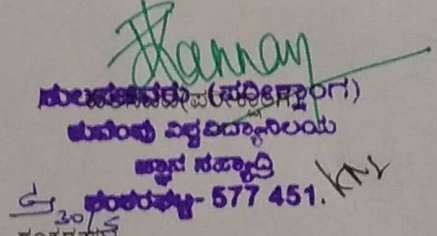 Kannan
ಕುಲಸಚಿವರು (ಪರೀಕ್ಷಾಂಗ)
ಕುವೆಂಪು ವಿಶ್ವವಿದ್ಯಾನಿಲಯ
ಜ್ಞಾನ ಸಹ್ಯಾದ್ರಿ
ಶಂಕರಘಟ್ಟ- 577 451.